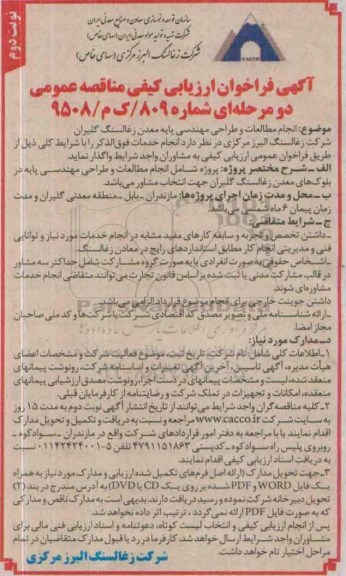 نوبت دوم
سازمان توسعه و نوسازی معادن و صنایع معدنی ایران
شرکت تهیه و تولید مواد معدنی ایران (سهامی خاص)
شرکت زغالسنگ البرز مرکزی (سهامی خاص)
CACCO
آگهی فراخوان ارزیابی کیفی مناقصه عمومی
دو مرحله‌ای شماره ۸۰۹/ک م/۹۵۰۸
موضوع: انجام مطالعات و طراحی مهندسی پایه معدن زغالسنگ گلیران
شرکت زغالسنگ البرز مرکزی در نظر دارد انجام خدمات فوق‌الذکر را با شرایط کلی ذیل از
طریق فراخوان عمومی ارزیابی کیفی به مشاوران واجد شرایط واگذار نماید.
الف ـ شرح مختصر پروژه: پروژه شامل انجام مطالعات و طراحی مهندسی پایه در
بلوک‌های معدن زغالسنگ گلیران جهت انتخاب مشاور می‌باشد.
ب ـ محل و مدت زمان اجرای پروژه‌ها: مازندران ـ بابل ـ منطقه معدنی گلیران و مدت
زمان پیمان ۶ ماه شمسی می‌باشد
ج ـ شرایط متقاضی:
ـ داشتن تخصص و تجربه و سابقه کارهای مفید مشابه در انجام خدمات مورد نیاز و توانایی
فنی و مدیریتی انجام کار مطابق استانداردهای رایج در معادن زغالسنگ
ـ اشخاص حقوقی به صورت انفرادی یا به صورت گروه مشارکت شامل حداکثر سه مشاور
در قالب مشارکت مدنی یا ثبت شده بر اساس قانون تجارت می‌توانند متقاضی انجام خدمات
مشاوره‌ای شوند.
داشتن جوینت خارجی برای انجام موضوع قرارداد الزامی می‌باشد.
ـ ارائه شناسنامه ملی و تصویر مصدق کد اقتصادی شرکت یا شرکت‌ها و کد ملی صاحبان
مجاز امضا
د ـ مدارک مورد نیاز:
۱ـ اطلاعات کلی شامل نام شرکت، تاریخ ثبت، موضوع فعالیت شرکت و مشخصات اعضای
هیأت مدیره، آگهی تاسیس، آخرین آگهی تغییرات و اساسنامه شرکت، رونوشت پیمانهای
منعقد شده، لیست و مشخصات پیمانهای در دست اجرا، رونوشت مصدق ارزشیابی پیمانهای
منعقده، امکانات و تجهیزات در تملک شرکت و رضایتنامه از کارفرمایان قبلی.
۲ـ کلیه مناقصه‌گران واجد شرایط می‌توانند از تاریخ انتشار آگهی نوبت دوم به مدت ۱۵ روز
به سایت شرکت www.cacco.ir مراجعه و نسبت به دریافت و تکمیل و تحویل مدارک
اقدام نمایند یا با مراجعه به دفتر امور قراردادهای شرکت واقع در مازندران ـ سوادکوه ـ
روبروی پلیس راه سوادکوه ـ کدپستی ۴۷۹۱۱۵۱۸۶۳ تلفن ۵ـ۰۱۱۴۲۴۲۴۰۰۱ نسبت
به دریافت اسناد ارزیابی کیفی اقدام نمایند.
۳ـ جهت تحویل مدارک (ارائه اصل فرم‌های تکمیل شده ارزیابی و مدارک مورد نیاز به همراه
یک فایل WORD و PDF شده بر روی یک CD یا DVD) به آدرس مندرج در بند (۲)
تحویل دبیرخانه شرکت نموده و رسید دریافت دارند. بدیهی است به مدارک ناقص و مدارکی
که به صورت فایل PDF ارائه نمی‌گردد، ترتیب اثر داده نخواهد شد.
پس از انجام ارزیابی کیفی و انتخاب لیست کوتاه، دعوتنامه و اسناد ارزیابی فنی مالی برای
مشاوران واجد شرایط ارسال خواهد شد. کارفرما در رد یا قبول مدارک متقاضیان در تمام
مراحل اختیار تام خواهد داشت.
شرکت زغالسنگ البرز مرکزی